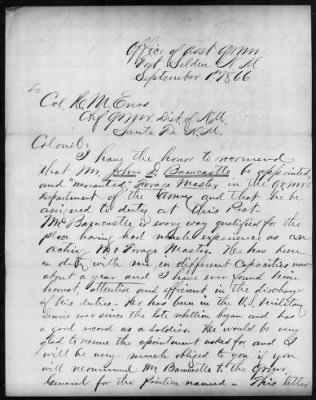 Office of Asst Qr Mr
Fort Selden N. M
September 1st 1866
To
Col. H. M. Enos
Chf Qr Mr Dist. of N.M.
Santa Fe N.M.
Colonel:
I have the honor to recomend
that Mr. John D. Barncastle be appointed,
and "warranted" Forage Master in the Qr Mrs
Department of the army and that he be
assigned to duty at this Post.
Mr Barncastle is every way qualified for the
place having had much experience as an
acting Forage Master. He has been
on duty with me in different capacities now
about a year and I have ever found him
honest, attentive and efficient in the discharge
of his duties. He has been in the U.S. Military
Service ever since the late rebellion began and has
a good record as a Soldier. He would be very
glad to receive the appointment asked for and I
will be very much obliged to you if you
will recommend Mr Barncastle to the Qr Mr
General for the position named. This letter